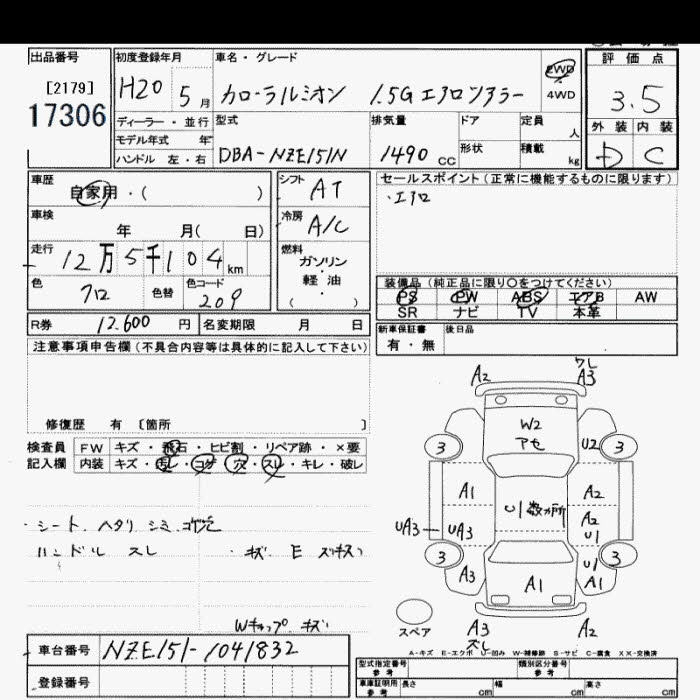 出品番号
[2179]
17306
初度登録年月
H20 5月
車名・グレード
カローラルミオン 1.5G エアロツアラー
2WD
4WD
評価点
3.5
外装 内装
D C
ディーラー・並行
モデル年式 年
ハンドル 左・右
型式
DBA-NZE151N
排気量
1490 CC
ドア
形状
定員
人
積載
kg
車歴
自家用・( )
車検
年 月( 日)
走行
12万5千104km
色
クロ
色替
色コード
209
シフト
AT
冷房
A/C
燃料
ガソリン
・
軽油
( )
セールスポイント(正常に機能するものに限ります)
・エアロ
装備品(純正品に限り○をつけてください)
PS PW ABS エアB AW
SR ナビ TV 本革
R券 12,600 円
名変期限 月 日
新車保証書
有・無
後日品
注意事項申告欄(不具合内容等は具体的に記入して下さい)
修復歴 有 〔箇所 〕
検査員
記入欄
FW キズ・飛石・ヒビ割・リペア跡・×要
内装 キズ・汚レ・コゲ・穴・スレ・キレ・破レ
・シート ヘタリ シミ コゲ穴
ハンドル スレ
・キズ E
Wキャップ キズ
A2
ワレ
A3
W2
アセ
3
U2
3
A1
U1数ヵ所
A2
UA3
UA3
A2
U1
3
A3
A1
U1
A1
3
スペア
A3
ズレ
A2
A-キズ E-エクボ U-凹み W-補修跡 S-サビ C-腐食 XX-交換済
車台番号
NZE151-1041832
登録番号
型式指定番号
参考
類別区分番号
参考
車庫証明用
参考
長さ cm
幅 cm
高さ cm